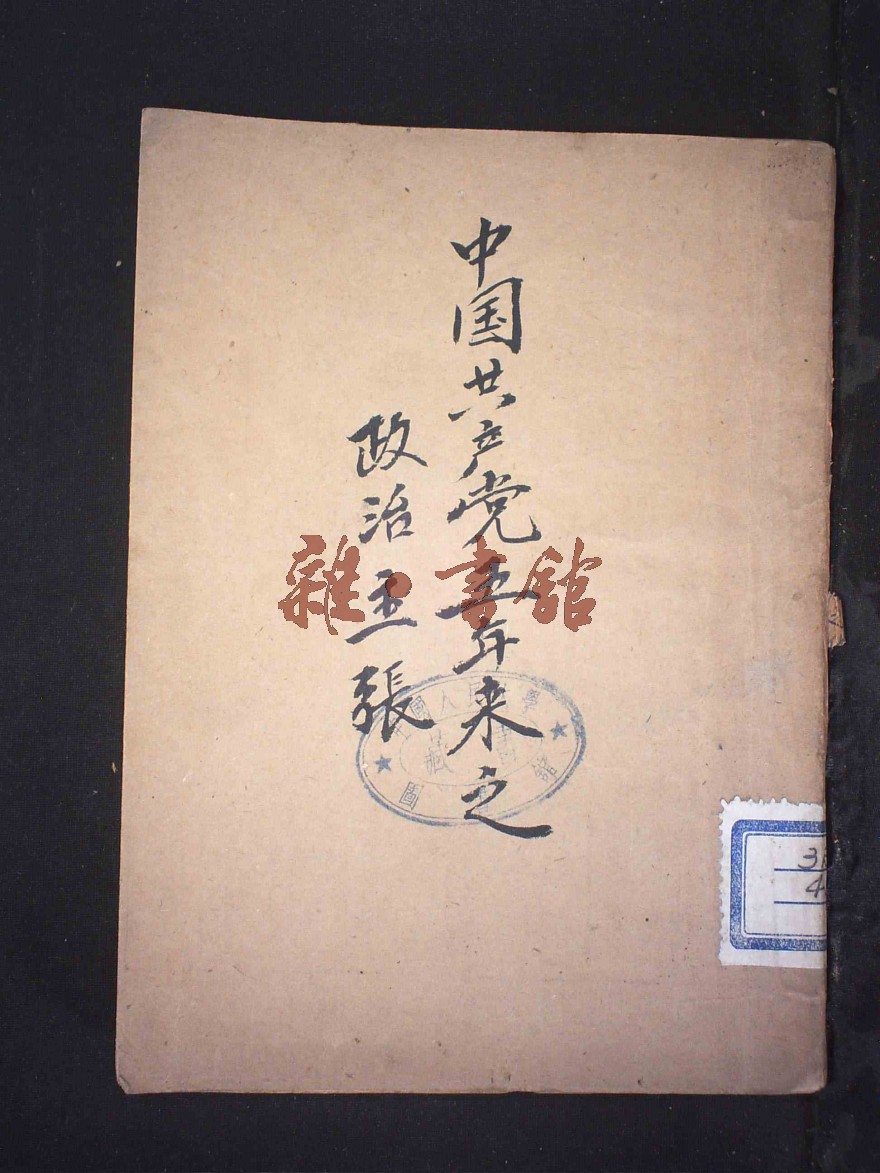 中国共产党五年来之
政治主張
雜·書館
中國人民大學
圖書館
藏書
3
4